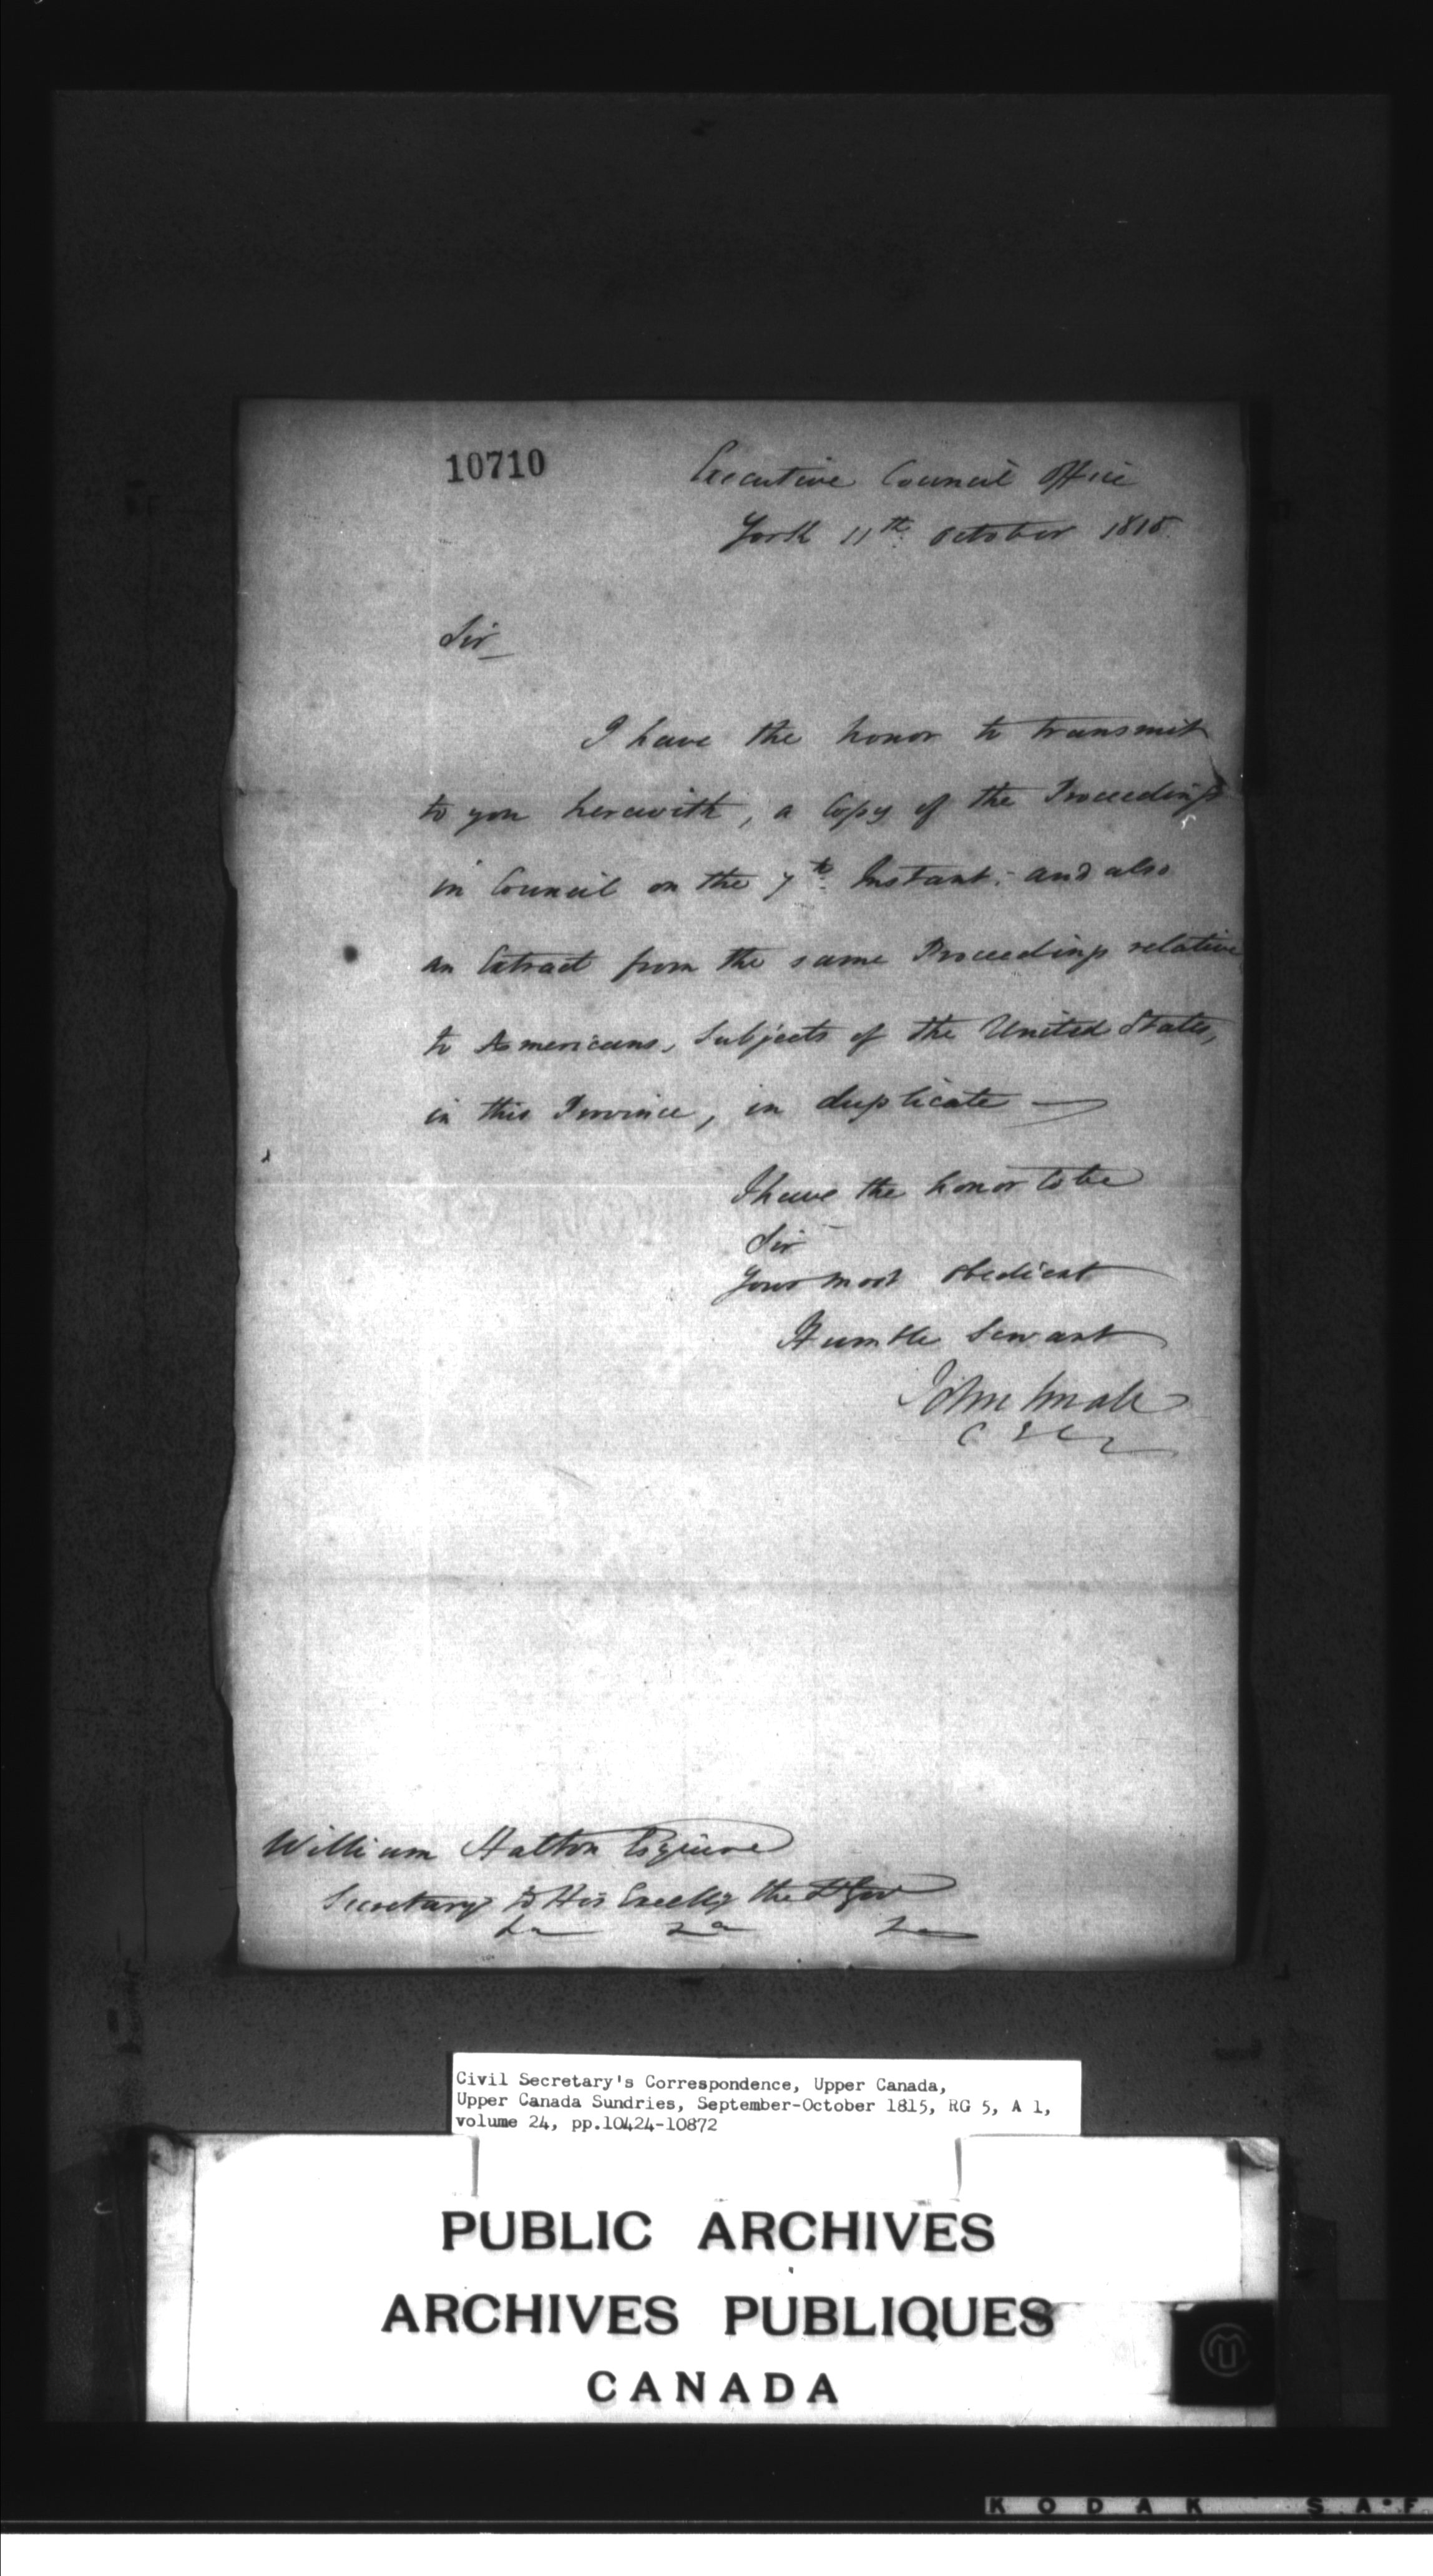 10710
Executive Council Office
York 11th October 1815.
Sir
I have the honor to transmit
to you herewith, a Copy of the Proceedings
in Council on the 7th Instant; and also
an Extract from the same Proceedings relative
to Americans, Subjects of the United States,
in this Province, in duplicate
I have the honor to be
Sir
Your most obedient
Humble Servant
John Small
William Halton Esquire
Secretary to His Excelly the Lt Gov
Civil Secretary's Correspondence, Upper Canada,
Upper Canada Sundries, September-October 1815, RG 5, A 1,
volume 24, pp.10424-10872
PUBLIC ARCHIVES
ARCHIVES PUBLIQUES
CANADA
KODAK SAF